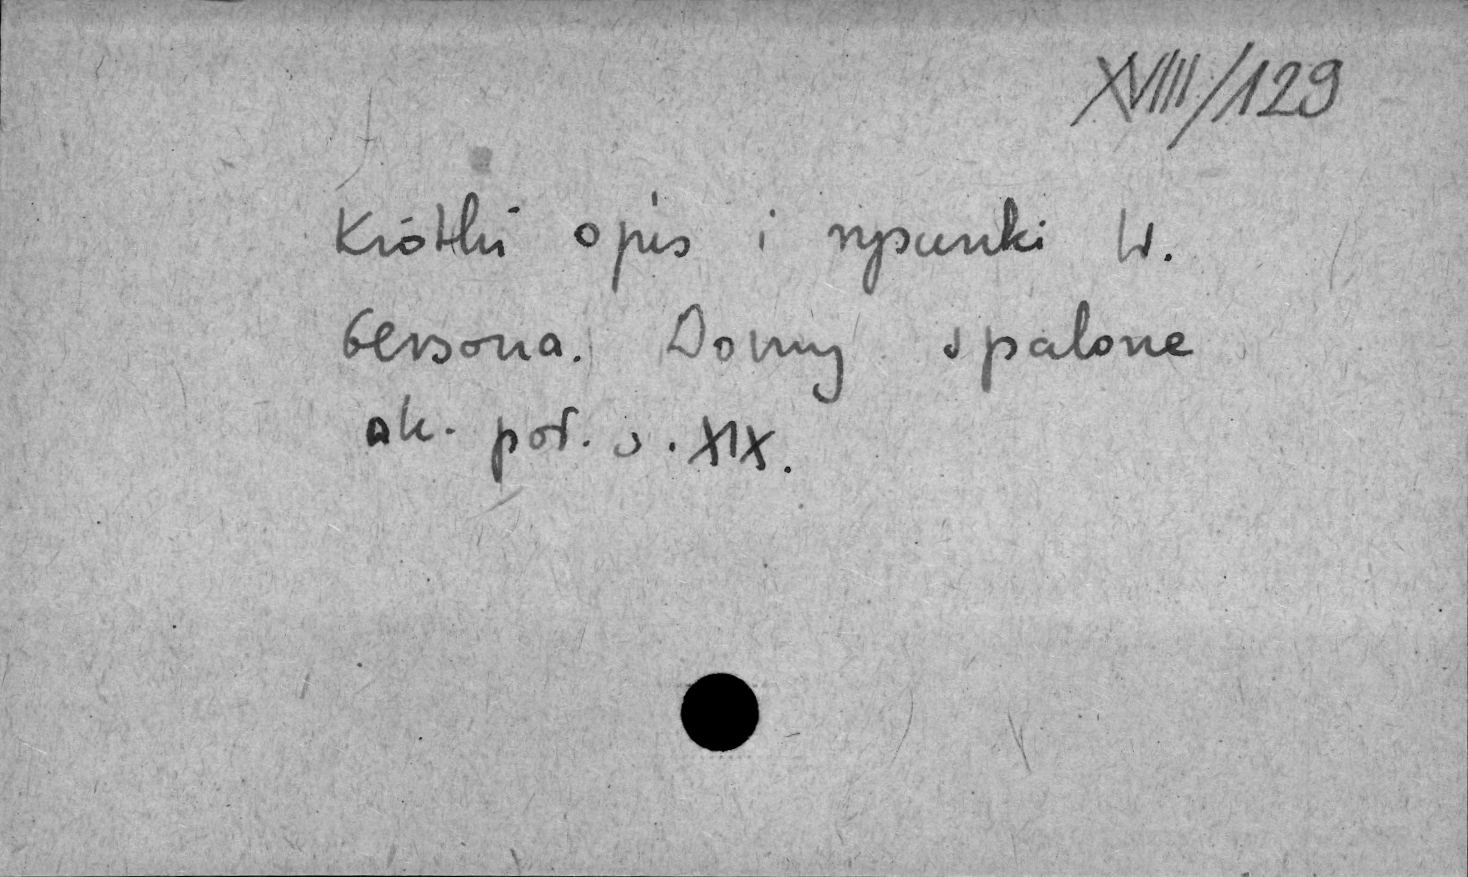 XVIII/129
Krótki opis i rysunki W.
Gersona. Domy spalone
ok. poł. w. XIX.